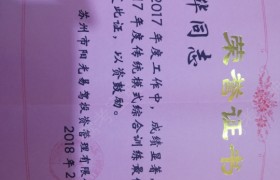 荣誉证书
华同志
2017年度工作中,成绩显著
17年度传统模式综合训练最佳
此证,以资鼓励。
苏州市阳光易驾投资管理有限
2018年2